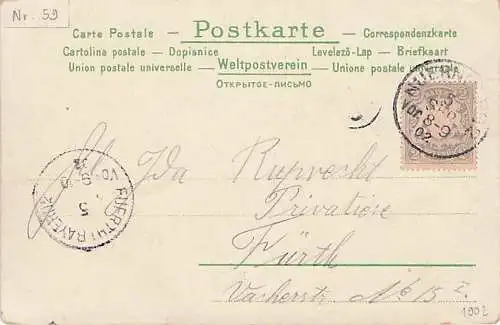 Nr. 59
Carte Postale - Postkarte - Correspondenzkarte
Cartolina postale - Dopisnice
Levelező-Lap - Briefkaart
Union postale universelle - Weltpostverein - Unione postale universale
Открытое-письмо
Ida Ruprecht
Privatiere
Fürth
Vacherstr. No 15 I.
FUERTH (BAYERN)
5
1902